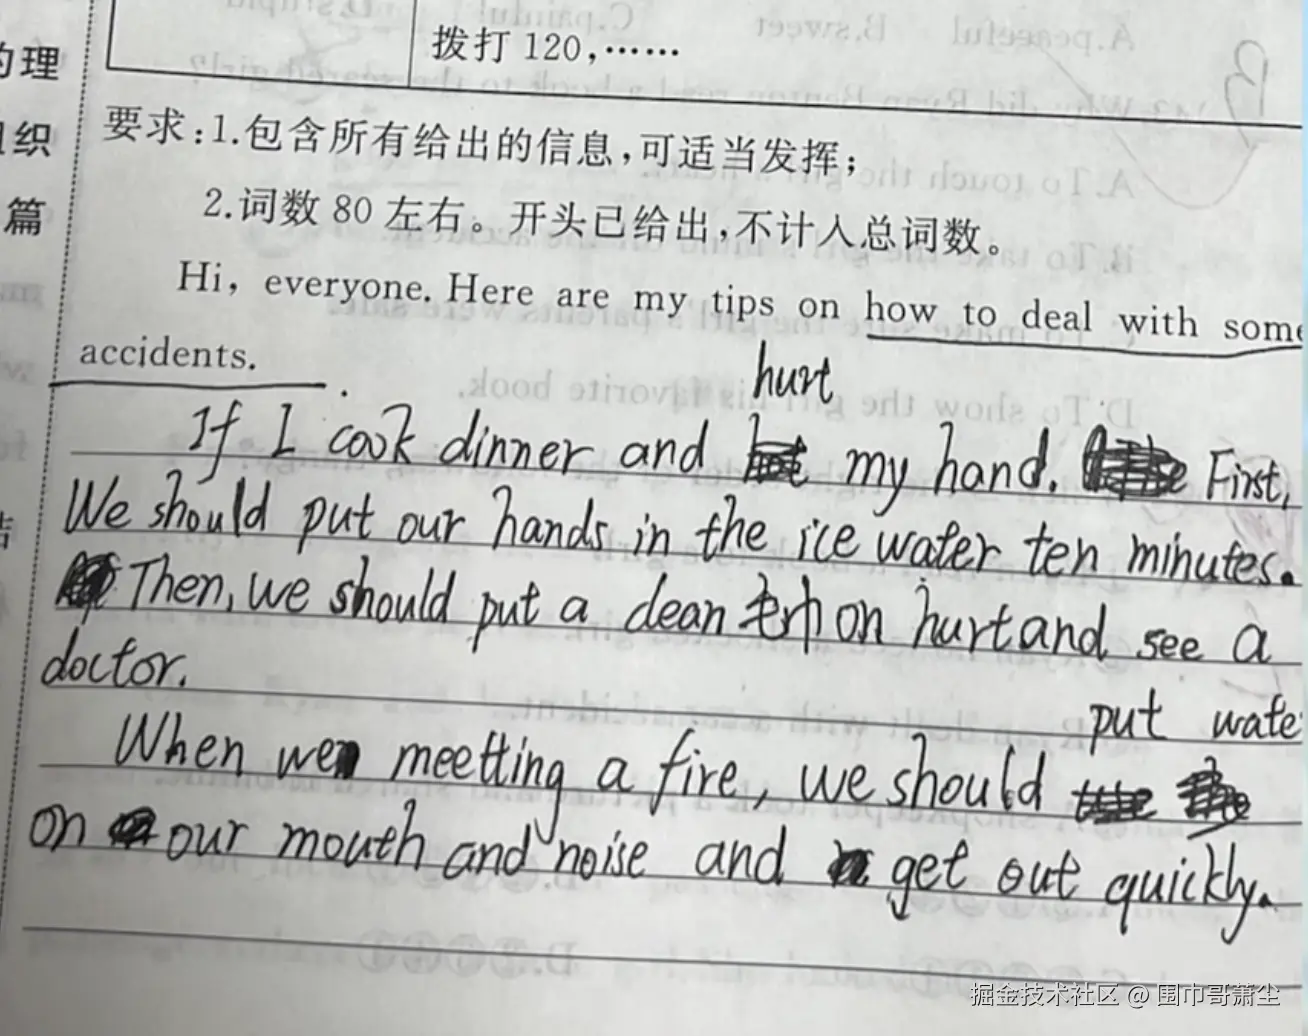 的理
组织
篇
结
拨打 120,……
要求:1.包含所有给出的信息,可适当发挥;
2.词数 80 左右。开头已给出,不计入总词数。
Hi, everyone. Here are my tips on how to deal with some
accidents.
hurt
If I cook dinner and my hand. First,
We should put our hands in the ice water ten minutes.
Then, we should put a clean 毛巾 on hurt and see a
doctor.
put wate
When we meetting a fire, we should
on our mouth and noise and get out quickly.
掘金技术社区 @ 围巾哥萧尘